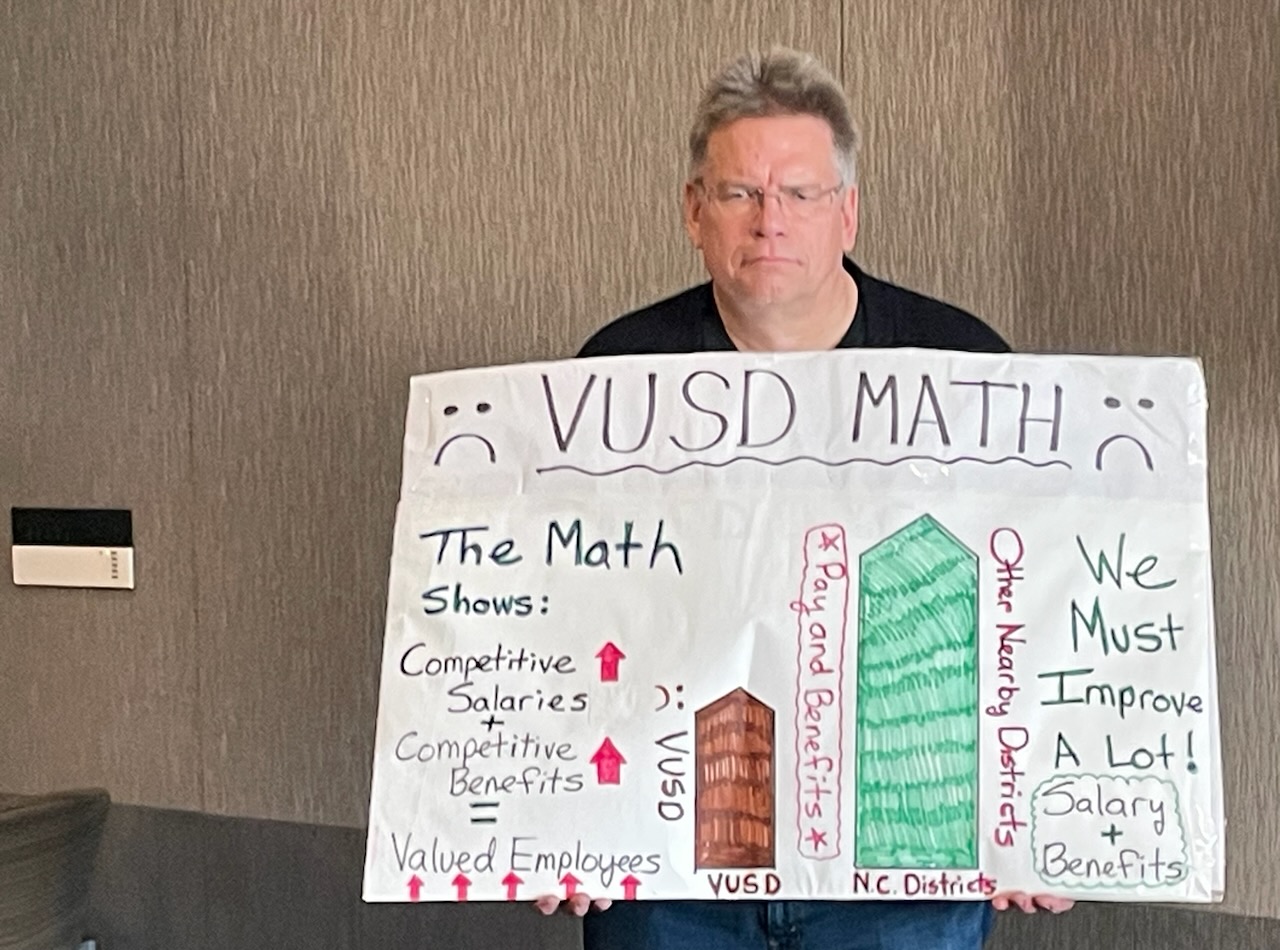 VUSD MATH
The Math
Shows:
Competitive
Salaries
+
Competitive
Benefits
=
Valued Employees
): VUSD
VUSD
* Pay and Benefits *
N.C. Districts
Other Nearby Districts
We
Must
Improve
A Lot!
Salary
+
Benefits